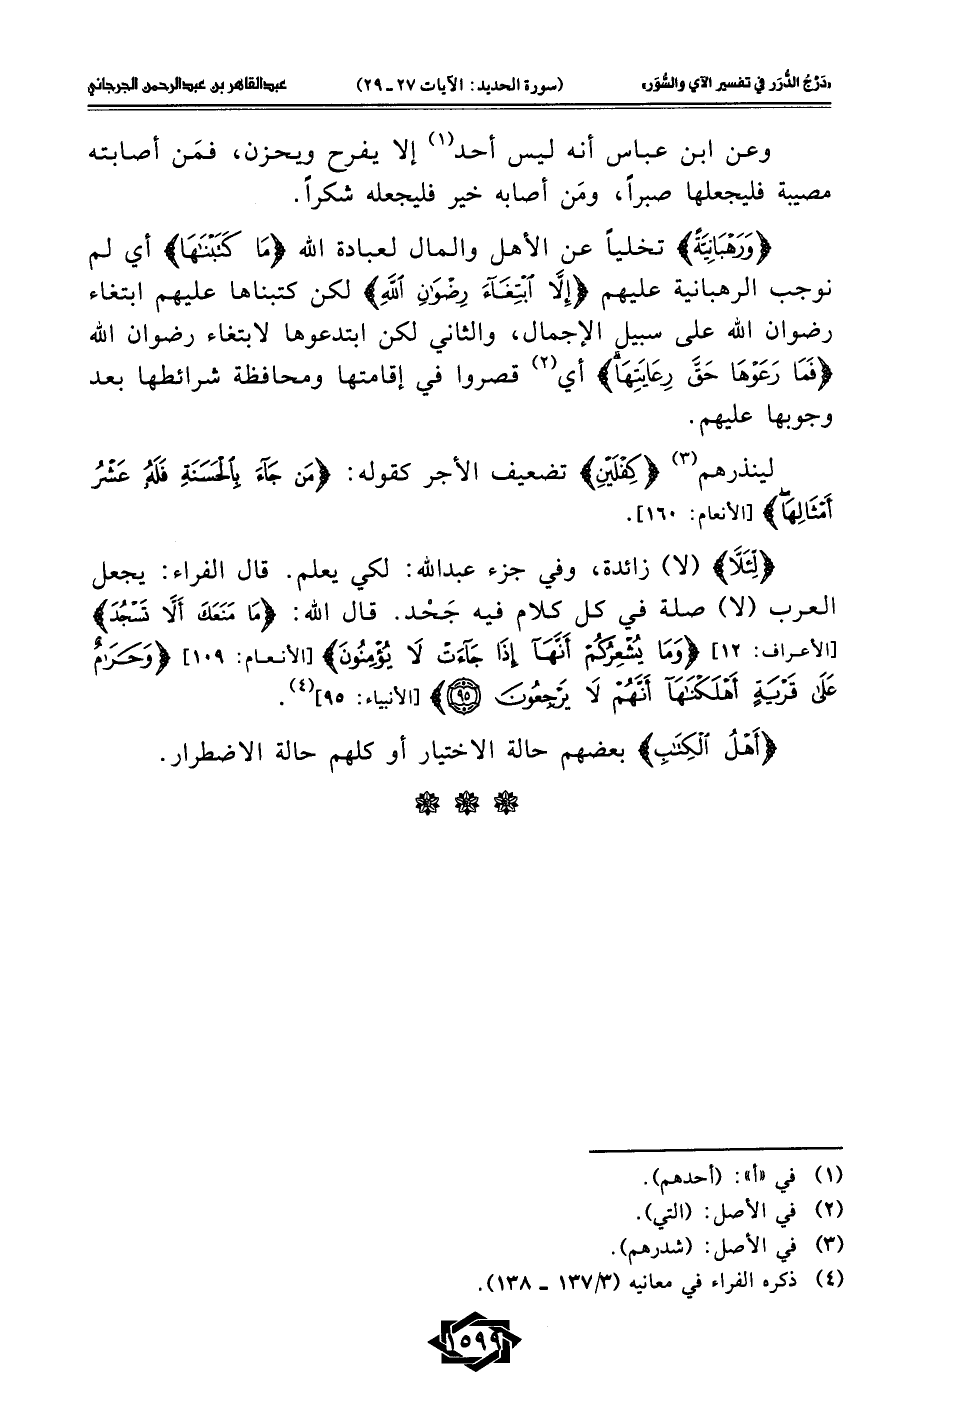 «دَرْجُ الدُّرَر في تفسير الآي والسُّوَر» (سورة الحديد: الآيات ٢٧ ـ ٢٩) عبدالقاهر بن عبدالرحمن الجرجاني
وعن ابن عباس أنه ليس أحد(١) إلا يفرح ويحزن، فمَن أصابته
مصيبة فليجعلها صبراً، ومَن أصابه خير فليجعله شكراً.
﴿وَرَهْبَانِيَّةً﴾ تخلياً عن الأهل والمال لعبادة الله ﴿مَا كَتَبْنَٰهَا﴾ أي لم
نوجب الرهبانية عليهم ﴿إِلَّا ٱبْتِغَآءَ رِضْوَٰنِ ٱللَّهِ﴾ لكن كتبناها عليهم ابتغاء
رضوان الله على سبيل الإجمال، والثاني لكن ابتدعوها لابتغاء رضوان الله
﴿فَمَا رَعَوْهَا حَقَّ رِعَايَتِهَا﴾ أي(٢) قصروا في إقامتها ومحافظة شرائطها بعد
وجوبها عليهم.
لينذرهم(٣) ﴿كِفْلَيْنِ﴾ تضعيف الأجر كقوله: ﴿مَن جَآءَ بِٱلْحَسَنَةِ فَلَهُۥ عَشْرُ
أَمْثَالِهَا﴾ [الأنعام: ١٦٠].
﴿لِّئَلَّا﴾ (لا) زائدة، وفي جزء عبدالله: لكي يعلم. قال الفراء: يجعل
العرب (لا) صلة في كل كلام فيه جَحْد. قال الله: ﴿مَا مَنَعَكَ أَلَّا تَسْجُدَ﴾
[الأعراف: ١٢] ﴿وَمَا يُشْعِرُكُمْ أَنَّهَآ إِذَا جَآءَتْ لَا يُؤْمِنُونَ﴾ [الأنعام: ١٠٩] ﴿وَحَرَٰمٌ
عَلَىٰ قَرْيَةٍ أَهْلَكْنَٰهَآ أَنَّهُمْ لَا يَرْجِعُونَ ٩٥﴾ [الأنبياء: ٩٥](٤).
﴿أَهْلُ ٱلْكِتَٰبِ﴾ بعضهم حالة الاختيار أو كلهم حالة الاضطرار.
(١) في «أ»: (أحدهم).
(٢) في الأصل: (التي).
(٣) في الأصل: (شدرهم).
(٤) ذكره الفراء في معانيه (١٣٧/٣ ـ ١٣٨).
١٥٩٩